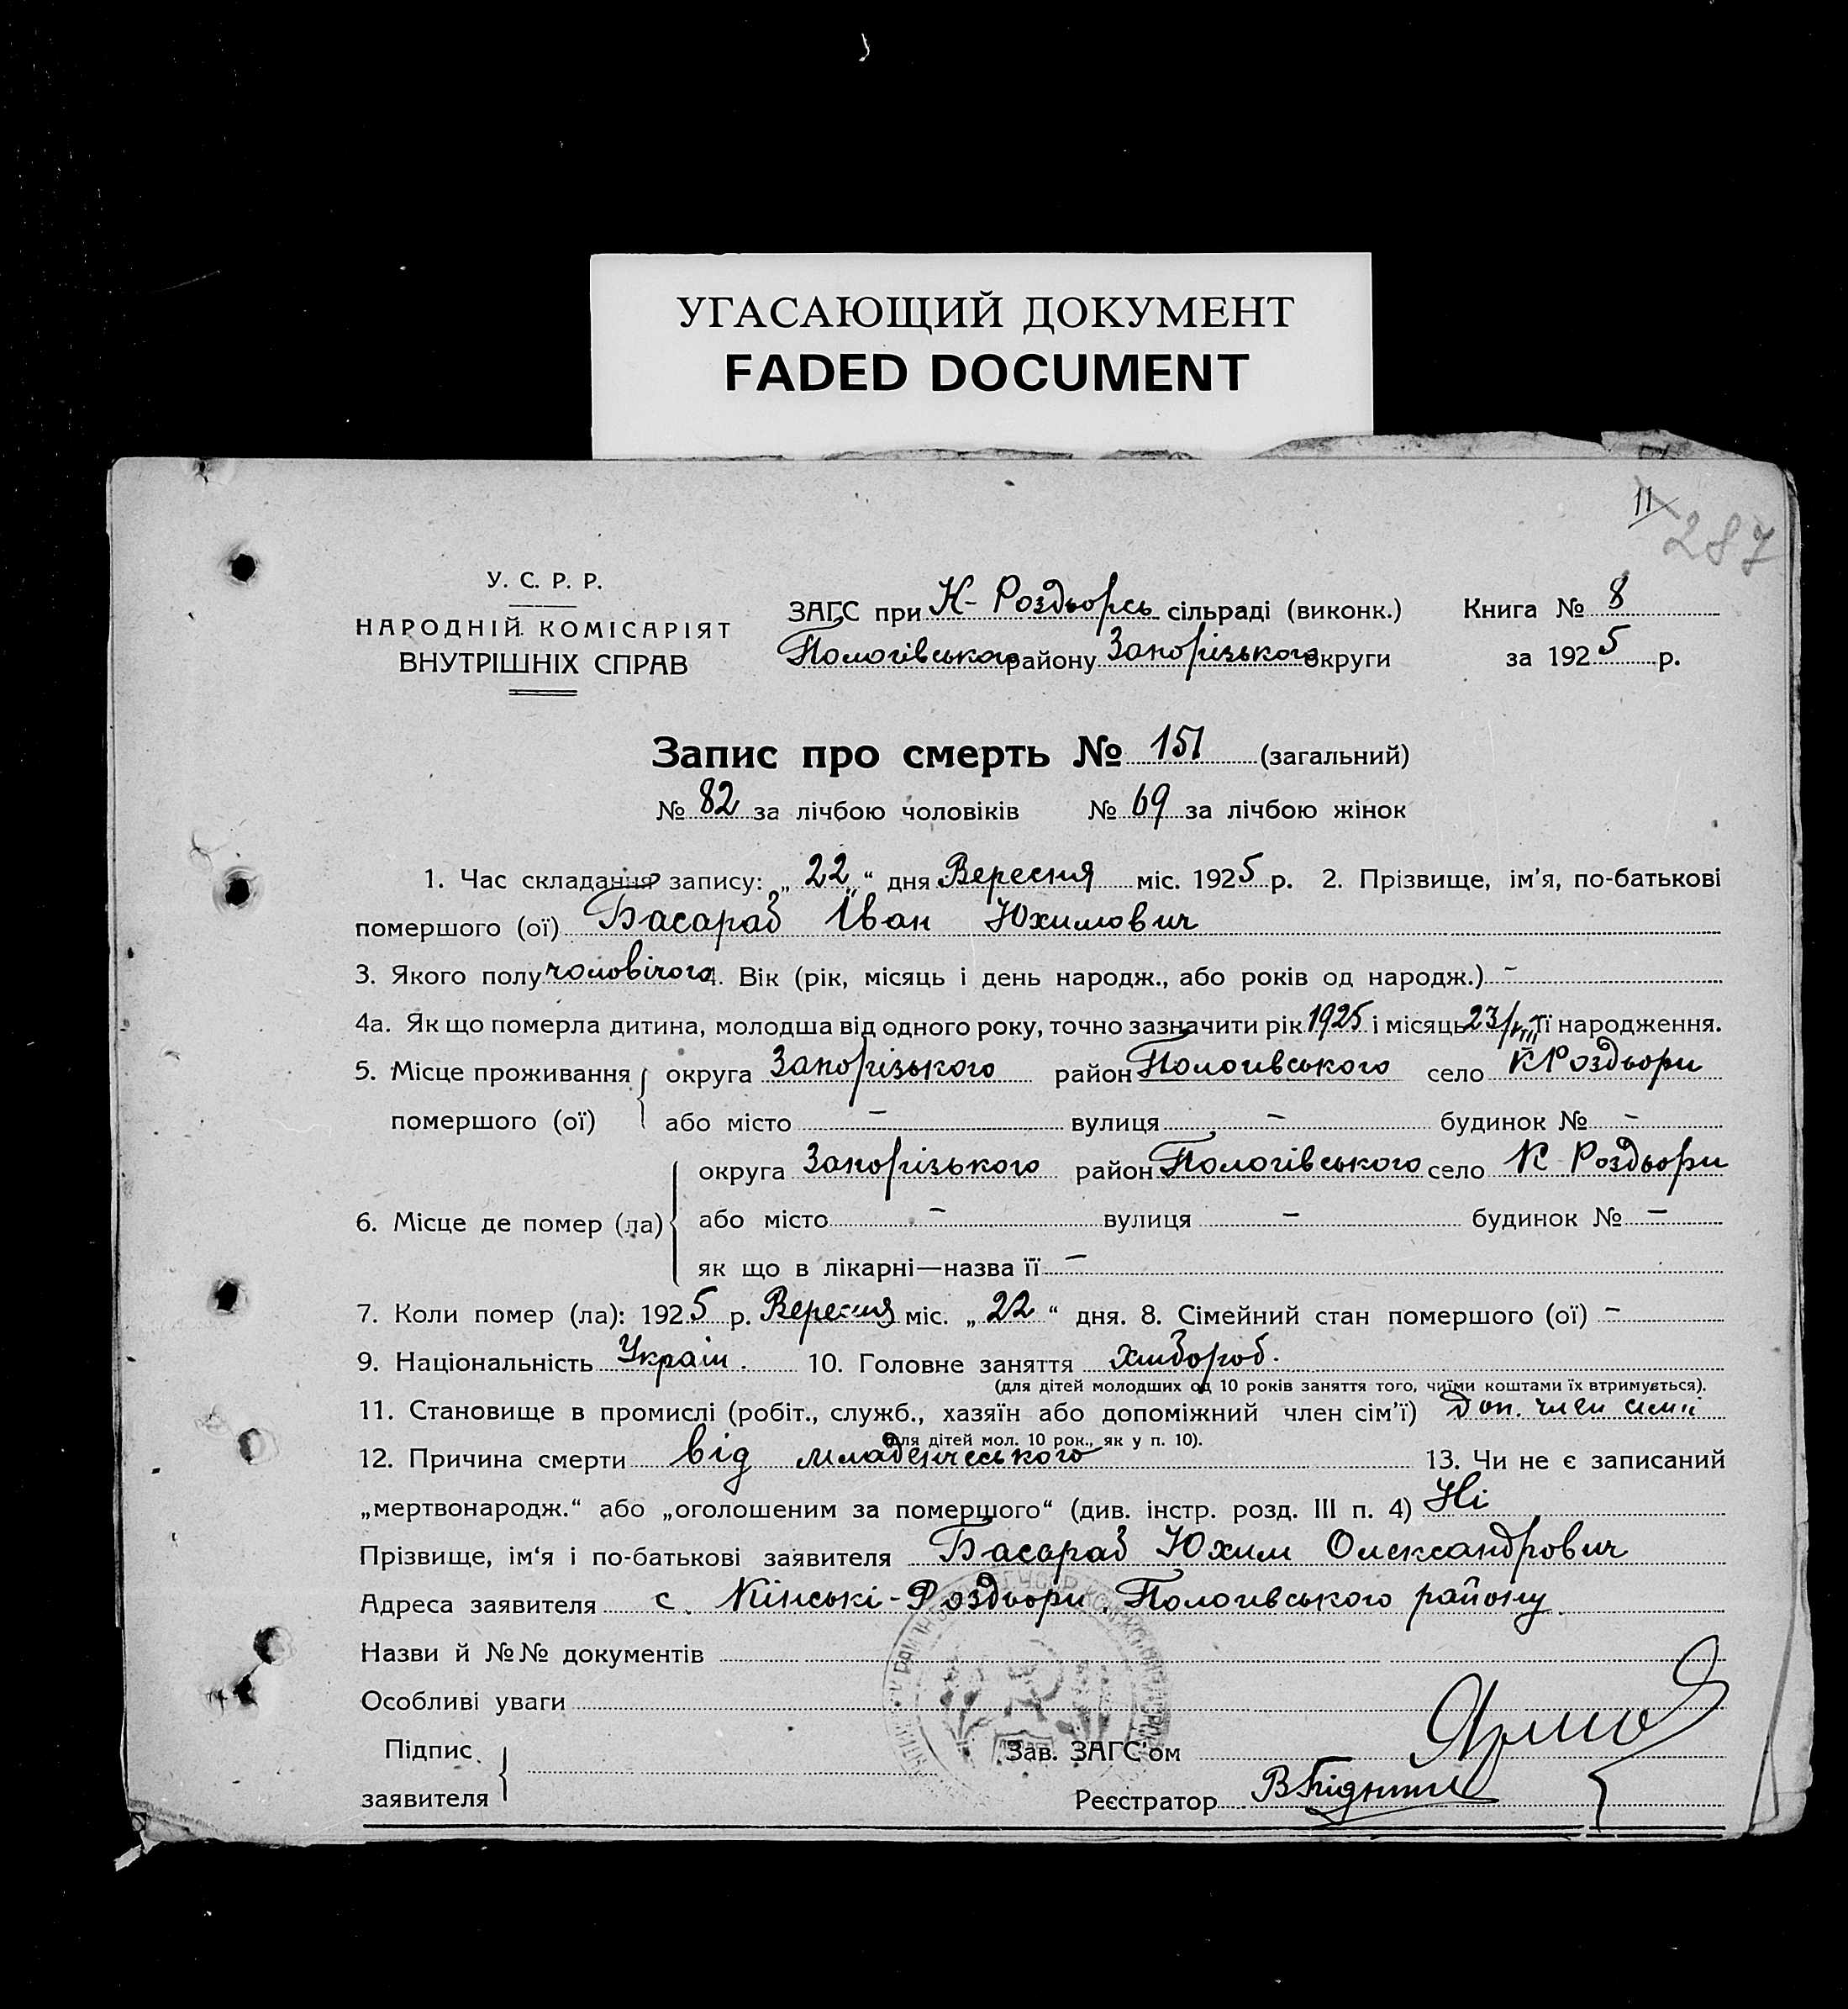 УГАСАЮЩИЙ ДОКУМЕНТ
FADED DOCUMENT
11
287
У. С. Р. Р.
НАРОДНІЙ КОМІСАРІЯТ
ВНУТРІШНІХ СПРАВ
ЗАГС при К- Роздьорсь сільраді (виконк.)
Пологівського району Запорізького округи
Книга № 8
за 1925 р.
Запис про смерть № 151 (загальний)
№ 82 за лічбою чоловіків № 69 за лічбою жінок
1. Час складання запису: „ 22 “ дня Вересня міс. 1925 р. 2. Прізвище, ім’я, по-батькові
помершого (ої) Басараб Іван Юхимович
3. Якого полу чоловічого 4. Вік (рік, місяць і день народж., або років од народж.) -
4а. Як що померла дитина, молодша від одного року, точно зазначити рік 1925 і місяць 23/VIII її народження.
5. Місце проживання округа Запорізького район Пологивського село К Роздьори
помершого (ої) або місто - вулиця - будинок № -
округа Запорізького район Пологівського село К Роздьори
6. Місце де помер (ла) або місто - вулиця - будинок № -
як що в лікарні—назва її -
7. Коли помер (ла): 1925 р. Вересня міс. „ 22 “ дня. 8. Сімейний стан помершого (ої) -
9. Національність Україн. 10. Головне заняття Хлібороб.
(для дітей молодших од 10 років заняття того, чиїми коштами їх втримується).
11. Становище в промислі (робіт., служб., хазяїн або допоміжний член сім’ї) Доп. член сімї
(для дітей мол. 10 рок., як у п. 10).
12. Причина смерти від младенчеського 13. Чи не є записаний
„мертвонародж.“ або „оголошеним за померщого“ (див. інстр. розд. III п. 4) Ні
Прізвище, ім‘я і по-батькові заявителя Басараб Юхим Олександрович
Адреса заявителя с. Кінські-Роздьори, Пологивського району.
Назви й №№ документів
Особливі уваги
Підпис
заявителя
Зав. ЗАГС’ом
Реєстратор